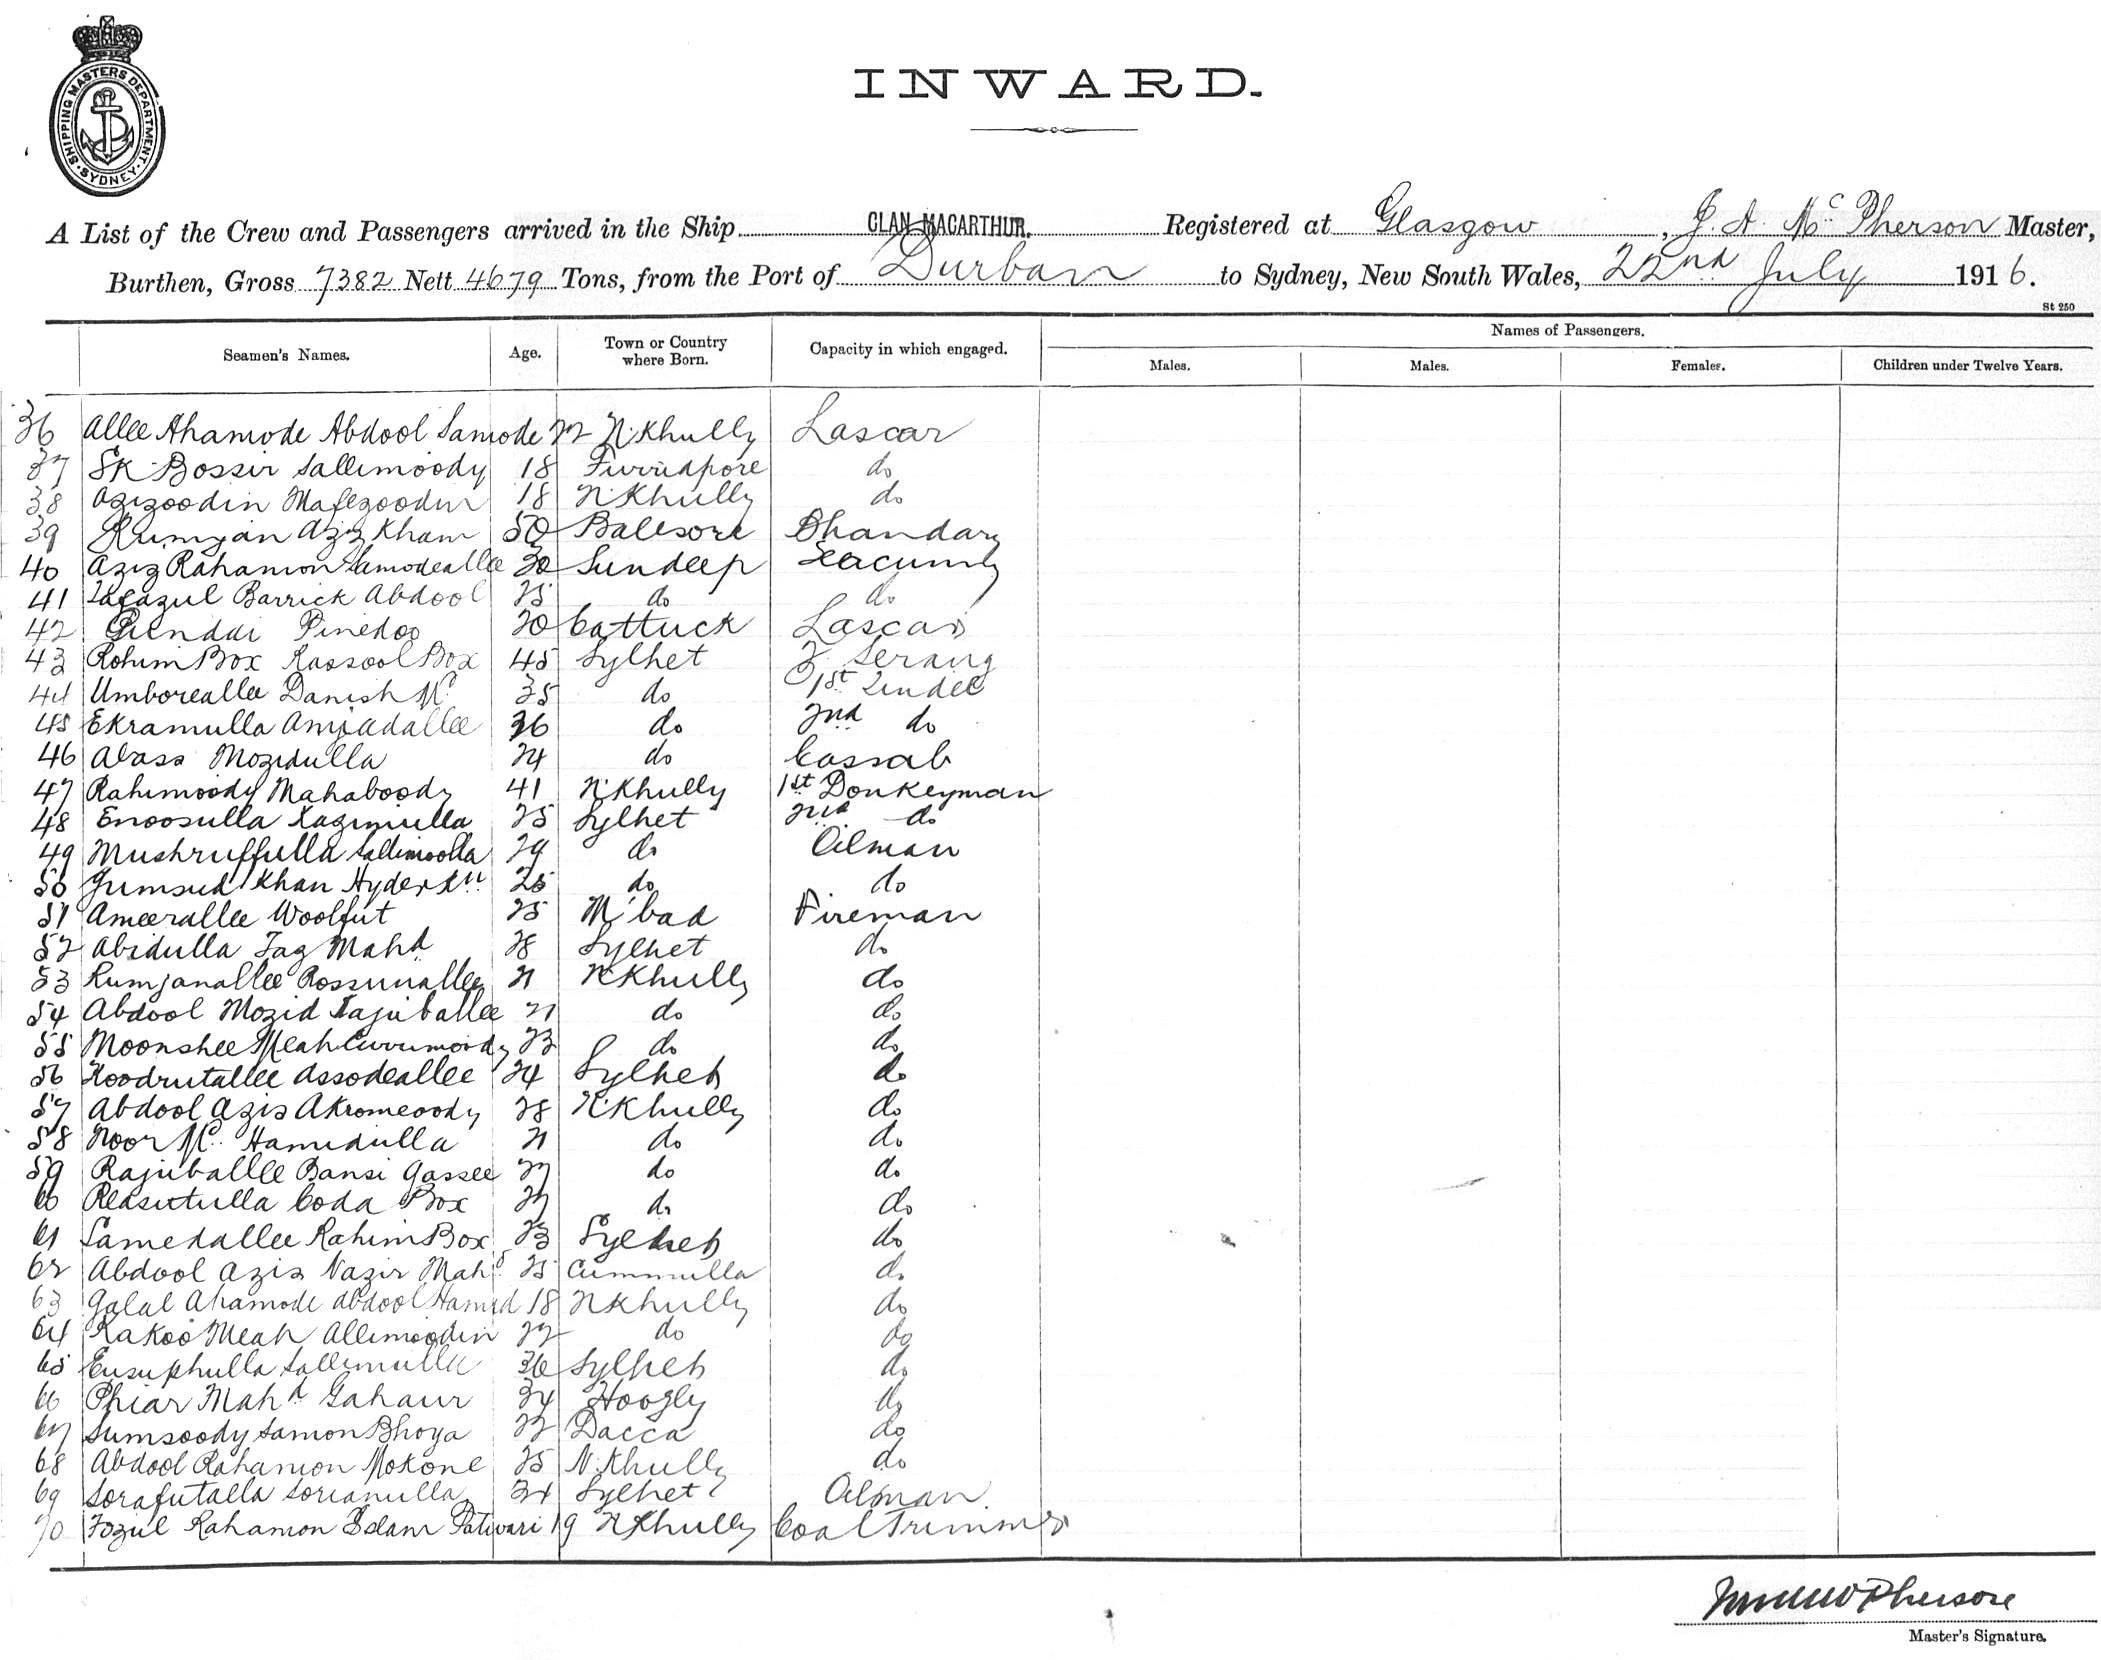 SHIPPING MASTERS DEPARTMENT
SYDNEY
INWARD.
A List of the Crew and Passengers arrived in the Ship CLAN MACARTHUR. Registered at Glasgow, J. A. McPherson Master,
Burthen, Gross 7382 Nett 4679 Tons, from the Port of Durban to Sydney, New South Wales, 22nd July 1916.
St 250
Seamen's Names. Age. Town or Country where Born. Capacity in which engaged. Names of Passengers.
Males. Males. Females. Children under Twelve Years.
36 Allee Ahamode Abdool Samode 22 N'Khully Lascar
37 SK Bossir Sallimoody 18 Furrudpore do
38 Azizoodin Mafezoodin 18 N'Khully do
39 Rumjan Aziz Khan 50 Balesore Bhandary
40 Aziz Rahamon Samodeallee 30 Sundeep Seacunny
41 Tafazul Barrick Abdool 25 do do
42 Pinedoo 20 Cattuck Lascar
43 Rohim Box Rassool Box 45 Sylhet F. Serang
44 Umboreallee Danish M. 35 do 1st Tindel
45 Ekramulla Amjadallee 36 do 2nd do
46 Abass Mozidulla 24 do Cassab
47 Rahimoody Mahaboody 41 N'Khully 1st Donkeyman
48 Enoosulla Kazimulla 25 Sylhet 2nd do
49 Mushruffulla Sallimoolla 29 do Oilman
50 Jumsud Khan Hyder Kn 25 do do
51 Ameerallee Woolfut 25 M'bad Fireman
52 Abidulla Taz Mahd 28 Sylhet do
53 Rumjanallee Rossunallee 21 N'Khully do
54 Abdool Mozid Najuballee 21 do do
55 Moonshee Meah Currumoody 23 do do
56 Koodrutallee Assodeallee 24 Sylhet do
57 Abdool Azis Akromeoody 28 N'Khully do
58 Noor M. Hamidulla 21 do do
59 Rajuballee Bansi Gassee 27 do do
60 Reasutulla Coda Box 27 do do
61 Samedallee Rahim Box 23 Sylhet do
62 Abdool Azis Nazir Mahd 25 Cummulla do
63 Galal Ahamode Abdool Hamid 18 N'Khully do
64 Kakoo Meah Allimoodin 22 do do
65 Eusuphulla Sallimulla 36 Sylhet do
66 Phiar Mahd Gahaur 34 Hoogly do
67 Sumsoody Samon Bhoya 22 Dacca do
68 Abdool Rahamon Mokone 25 N.Khully do
69 Sorafutalla Sorianulla 34 Sylhet Oilman.
70 Fozul Rahamon Islam Patwari 19 N'Khully Coal Trimmer
Master's Signature.